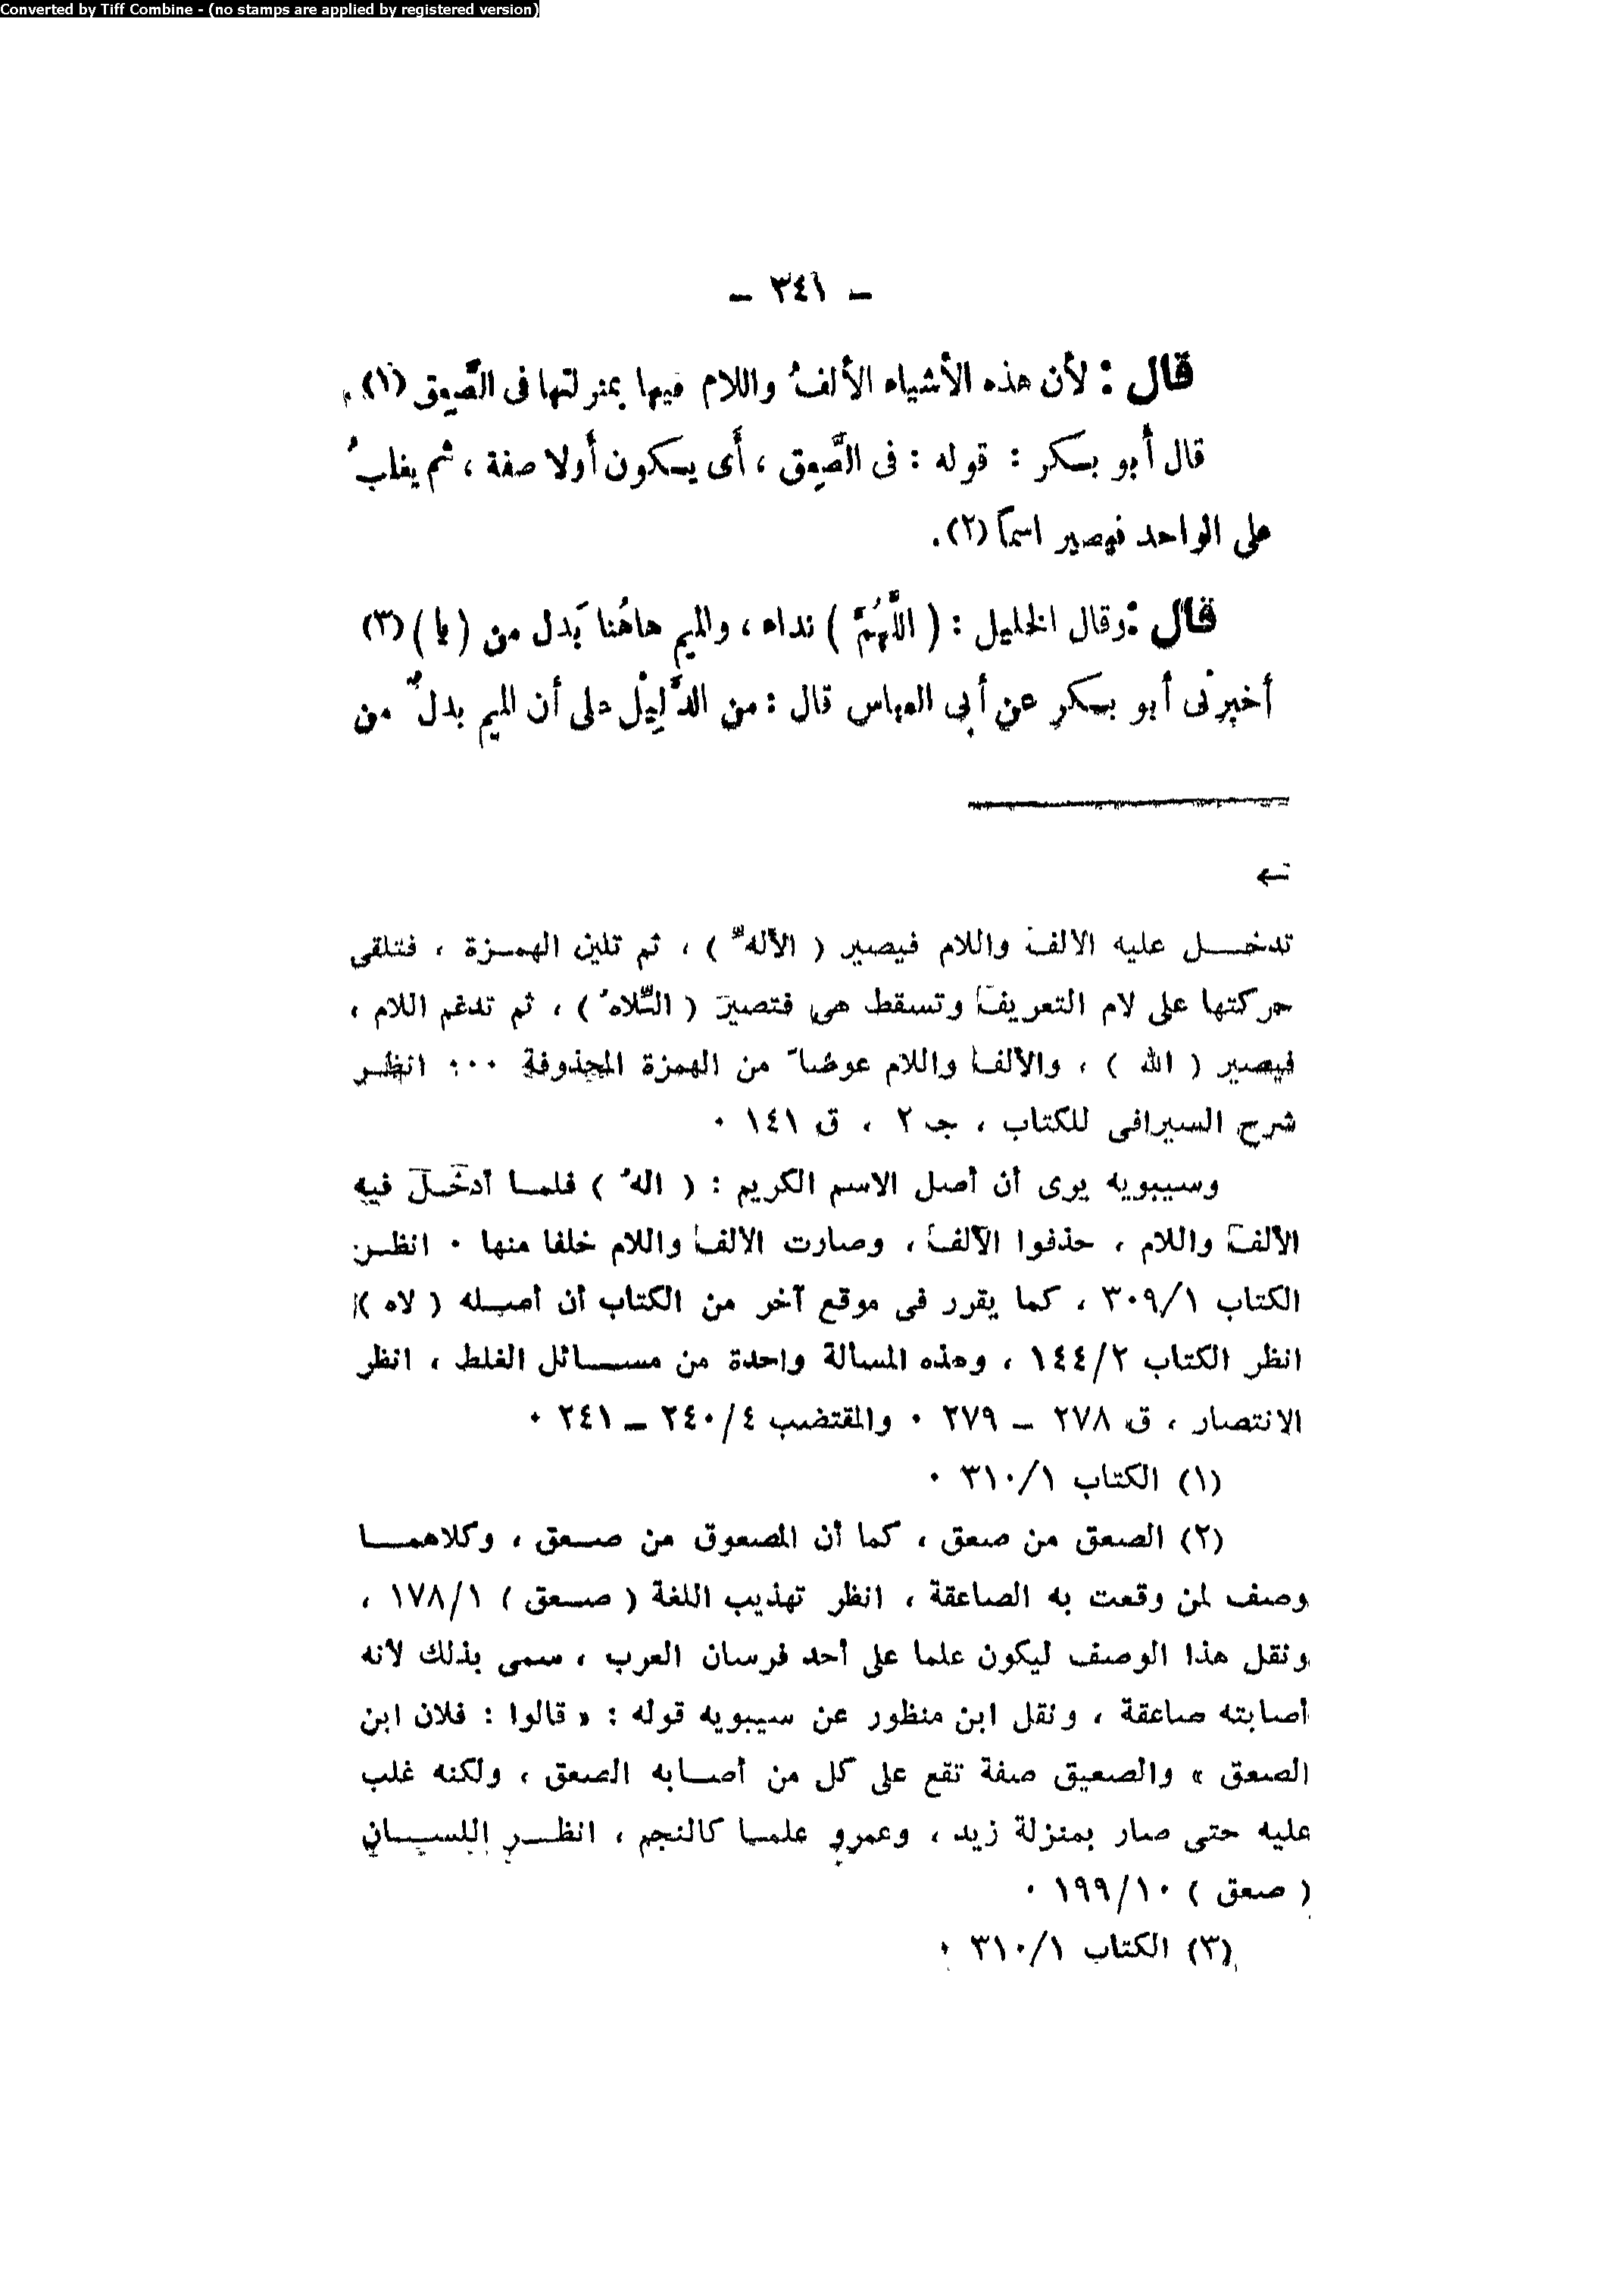 Converted by Tiff Combine - (no stamps are applied by registered version)
– ٣٤١ –
قال : لأن هذه الأشياء الألفُ واللام فيها بمنزلتها فى الصَّعِق (١) .
قال أبو بكر : قوله : فى الصَّعِق ، أى يكون أولا صفة ، ثم يغلبُ
على الواحد فيصير اسماً (٢) .
قال : وقال الخليل : ( اللَّهُمَّ ) نداء ، والميم هاهُنا بَدل من ( يا ) (٣)
أخبرنى أبو بكر عن أبى العباس قال : من الدَّلِيل على أن الميم بدلٌ من
←
تدخل عليه الالف واللام فيصير ( الألهُ ) ، ثم تلين الهمزة ، فتلقى
حركتها على لام التعريف وتسقط هى فتصير ( اللّلاهُ ) ، ثم تدغم اللام ،
فيصير ( الله ) ، والألف واللام عوضا من الهمزة المحذوفة ٠٠ : انظر
شرح السيرافى للكتاب ، جـ ٢ ، ق ١٤١ ٠
وسيبويه يرى أن أصل الاسم الكريم : ( الهُ ) فلما أدخل فيه
الألف واللام ، حذفوا الألف ، وصارت الألف واللام خلفا منها ٠ انظر
الكتاب ٣٠٩/١ ، كما يقرر فى موقع آخر من الكتاب أن أصله ( لاه )
انظر الكتاب ١٤٤/٢ ، وهذه المسالة واحدة من مسائل الغلط ، انظر
الانتصار ، ق ٢٧٨ – ٢٧٩ ٠ والمقتضب ٢٤٠/٤ – ٢٤١ ٠
(١) الكتاب ٣١٠/١ ٠
(٢) الصعق من صعق ، كما أن المصعوق من صعق ، وكلاهما
وصف لمن وقعت به الصاعقة ، انظر تهذيب اللغة ( صعق ) ١٧٨/١ ،
ونقل هذا الوصف ليكون علما على أحد فرسان العرب ، سمى بذلك لأنه
أصابته صاعقة ، ونقل ابن منظور عن سيبويه قوله : « قالوا : فلان ابن
الصعق » والصعيق صفة تقع على كل من أصابه الصعق ، ولكنه غلب
عليه حتى صار بمنزلة زيد ، وعمرو علما كالنجم ، انظر اللسان
( صعق ) ١٩٩/١٠ ٠
(٣) الكتاب ٣١٠/١ ٠